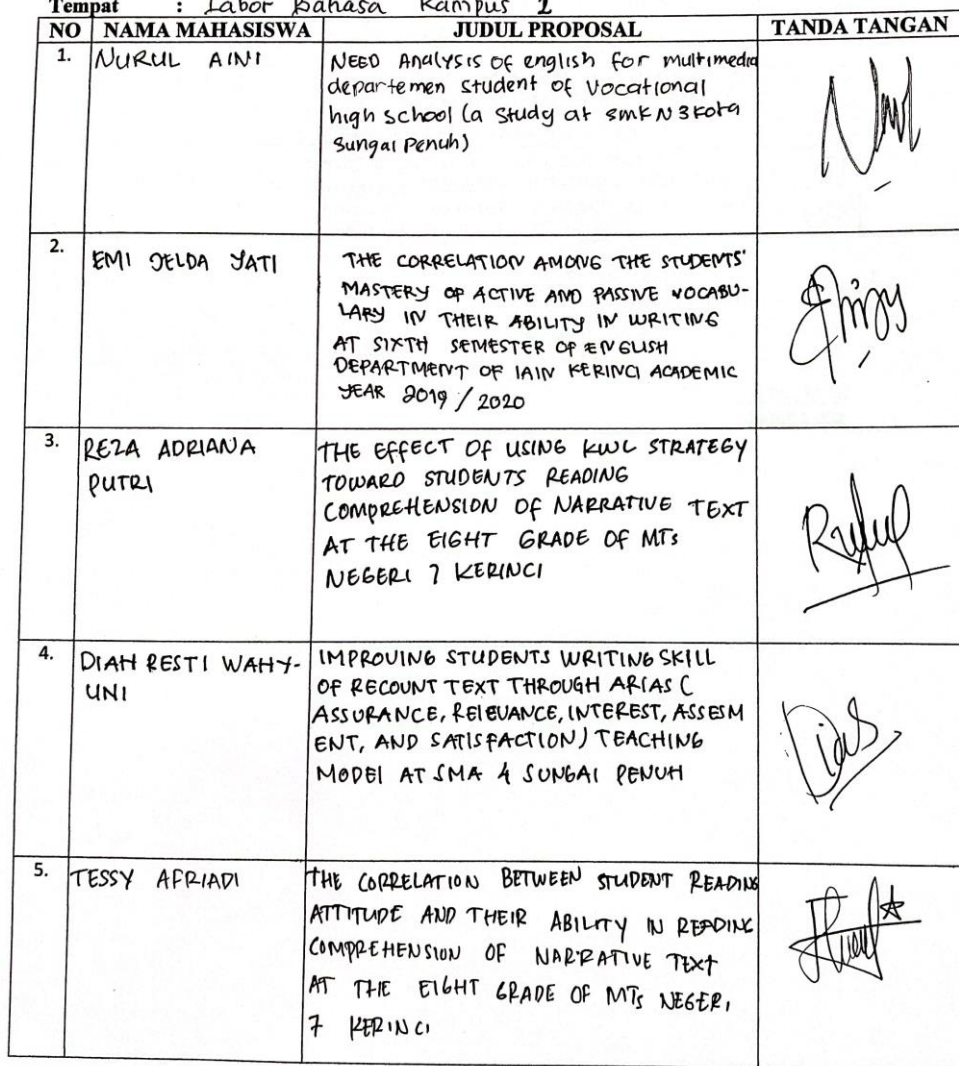 Tempat : Labor Bahasa Kampus 2
NO NAMA MAHASISWA JUDUL PROPOSAL TANDA TANGAN
1. NURUL AINI
NEED Analysis of english for multimedia
departemen student of Vocational
high school (a study at SMK N 3 Kota
Sungai Penuh)
2. EMI JELDA YATI
THE CORRELATION AMONG THE STUDENTS'
MASTERY OF ACTIVE AND PASSIVE VOCABU-
LARY IN THEIR ABILITY IN WRITING
AT SIXTH SEMESTER OF ENGLISH
DEPARTMENT OF IAIN KERINCI ACADEMIC
YEAR 2019 / 2020
3. REZA ADRIANA
PUTRI
THE EFFECT OF USING KWL STRATEGY
TOWARD STUDENTS READING
COMPREHENSION OF NARRATIVE TEXT
AT THE EIGHT GRADE OF MTs
NEGERI 7 KERINCI
4. DIAH RESTI WAHY-
UNI
IMPROVING STUDENTS WRITING SKILL
OF RECOUNT TEXT THROUGH ARIAS (
ASSURANCE, RElEVANCE, INTEREST, ASSESM
ENT, AND SATISFACTION) TEACHING
MODEl AT SMA 4 SUNGAI PENUH
5. TESSY AFRIADI
THE CORRELATION BETWEEN STUDENT READING
ATTITUDE AND THEIR ABILITY IN READING
COMPREHENSION OF NARRATIVE TEXT
AT THE EIGHT GRADE OF MTs NEGERI
7 KERINCI